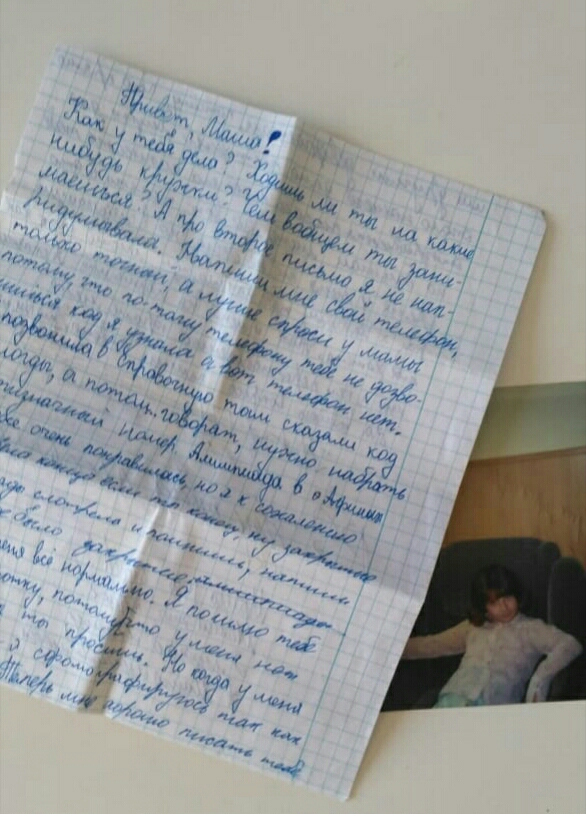 Привет, Маша!
Как у тебя дела? Ходишь ли ты на какие
нибудь кружки? Чем вобщем ты зани-
маешься? А про второе письмо я не нап-
ридумывала. Напиши мне свой телефон,
только точный, а лучше спроси у мамы
потому что по-тому телефону тебе не дозво-
нишься код я узнала а вот телефон нет.
позвонила в справочную там сказали код
логды, а потом, говорат, нужно набрать
тизначный номер. Алимпиада в "Афинах
же очень понравилась, но я к сожалению
конца если ты конец, ну закрытие
смотрела и помнишь, напиши
было закрытие
еня всё нормально. Я пошлю тебе
потомучто у меня нет
ты просишь. Но когда у меня
я сфоло-графируюсь так как
Теперь мне дорого писать тебе